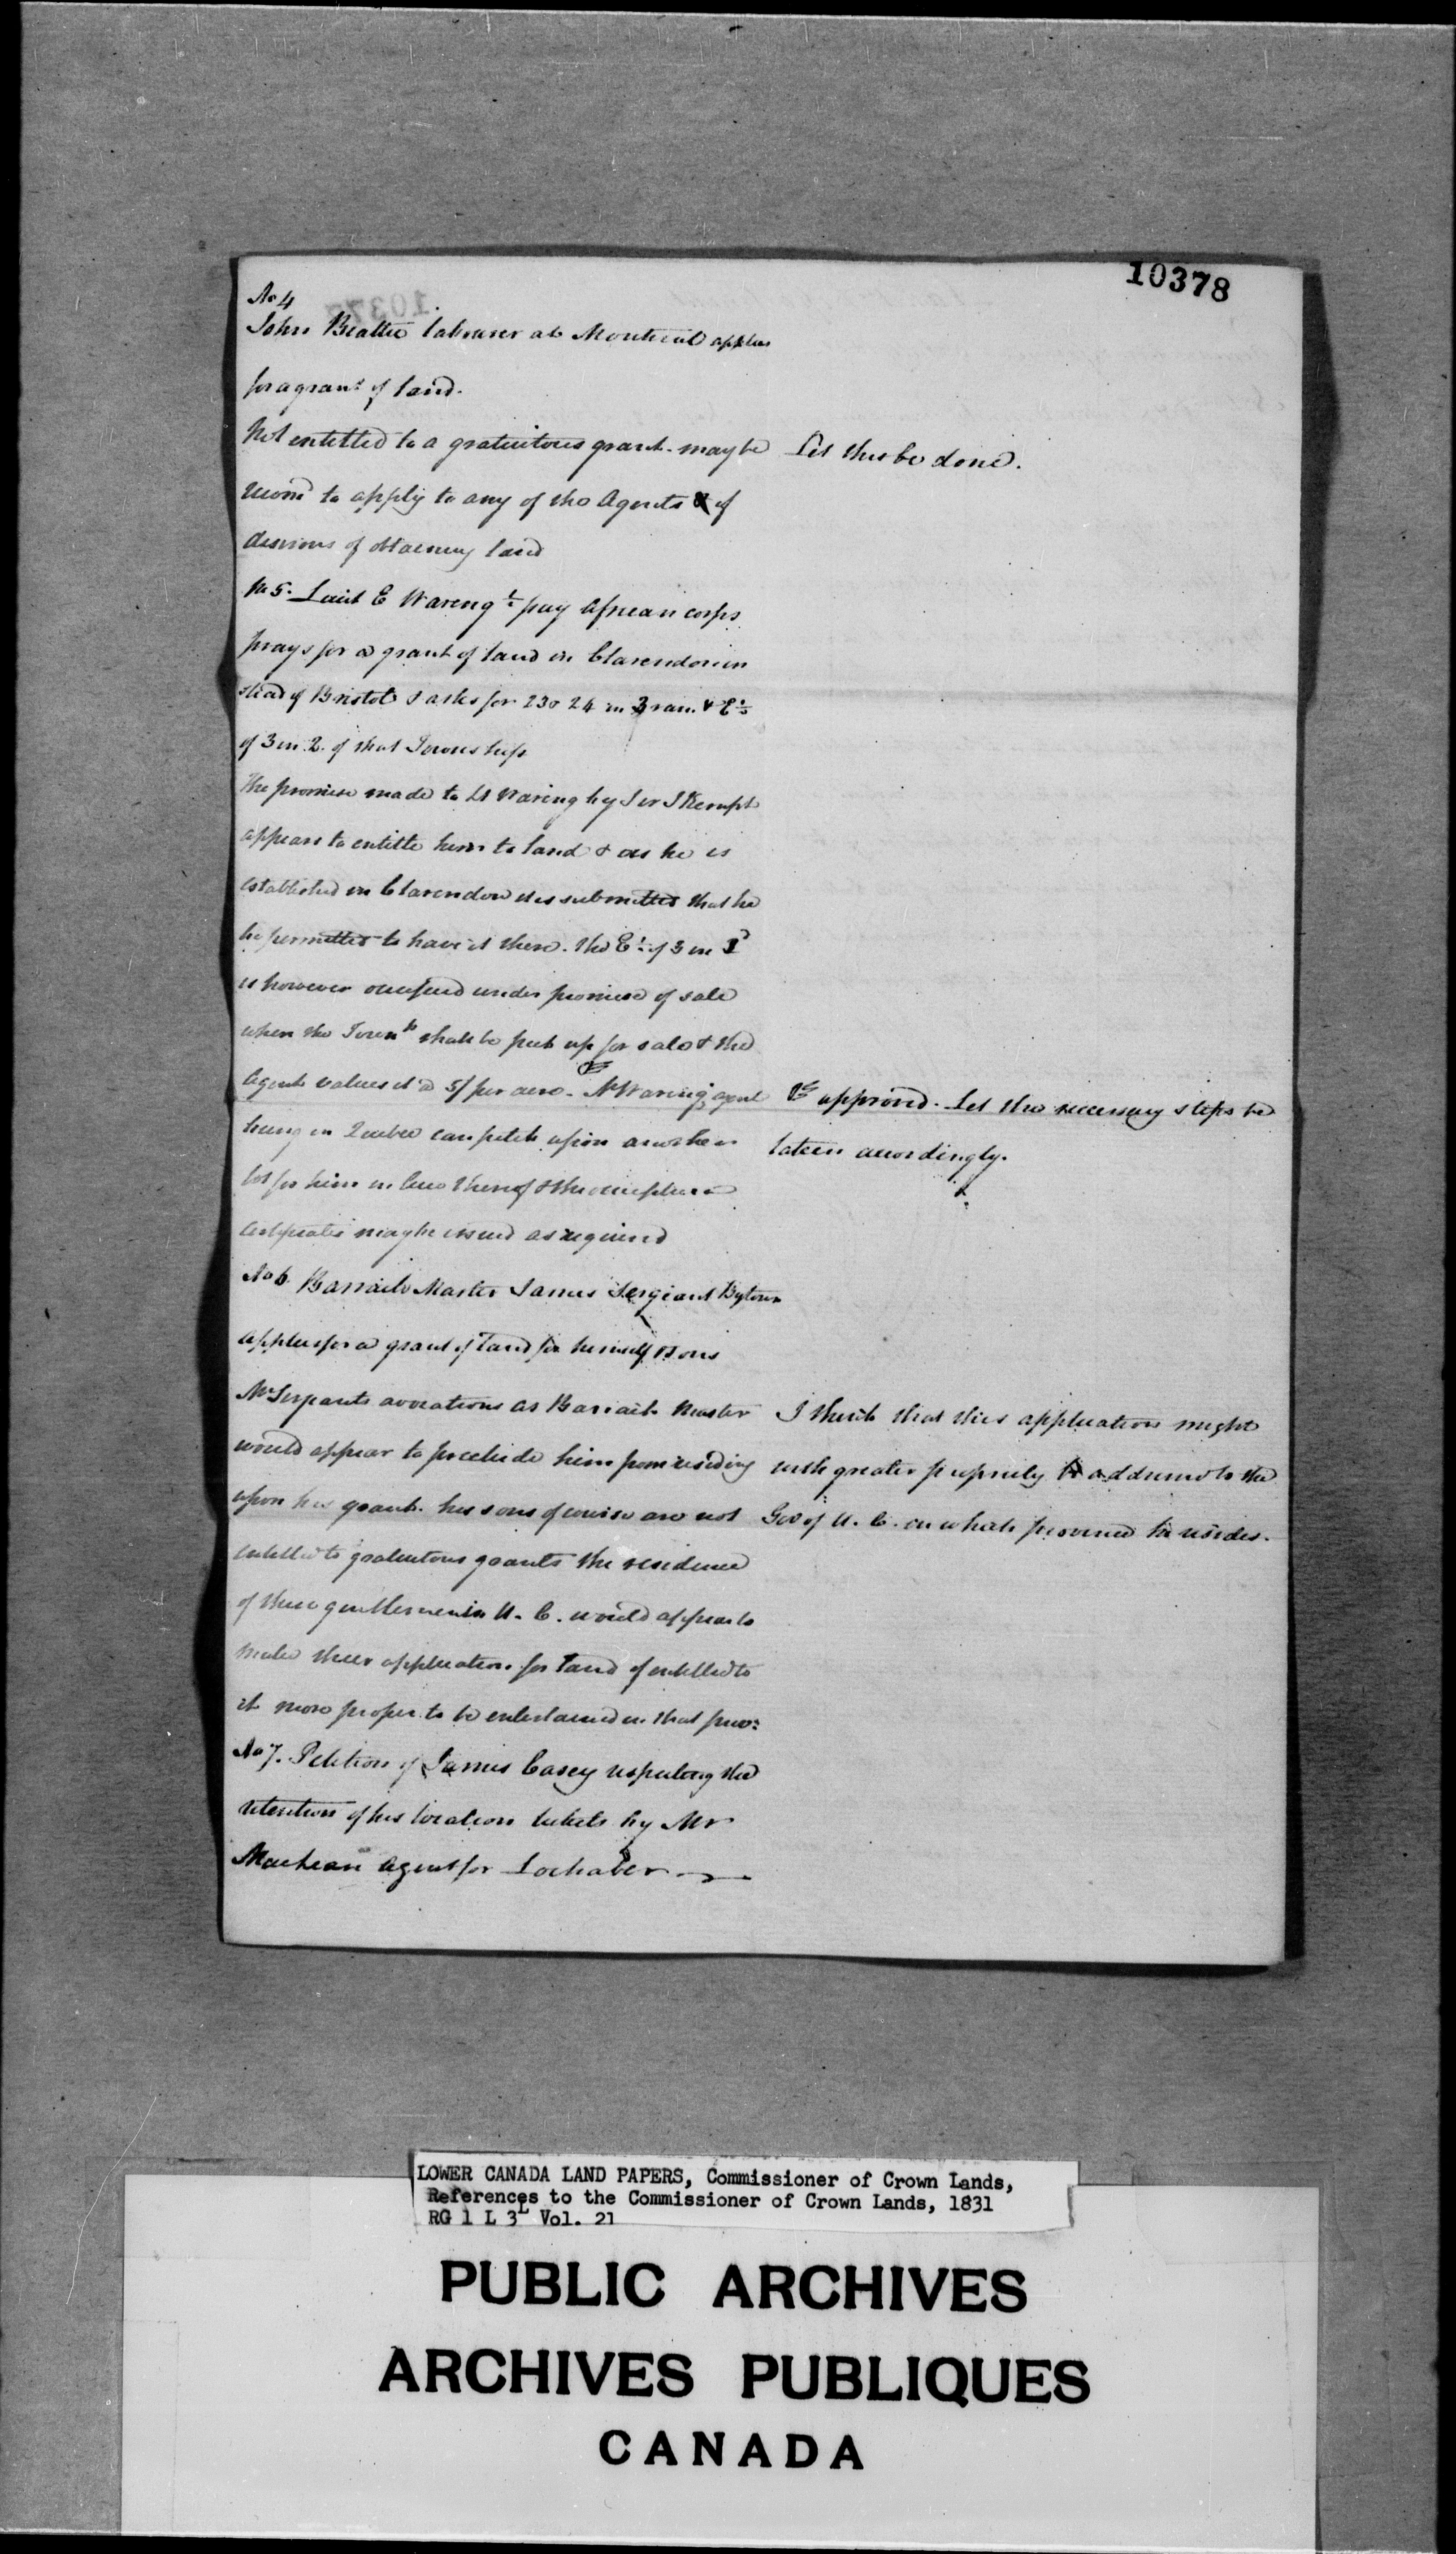 10378
No 4
John Beattie labourer at Montreal applies
for a grant of land.
Not entitled to a gratuitous grant. may be
recomd to apply to any of the Agents if
desirous of obtaining land
Let this be done.
No 5. Lieut E Waring ½ pay African corps
prays for a grant of land in Clarendon in
stead of Bristol & asks for 23 & 24 in 3 ran. & E ½
of 3 in 2. of that Township
The promise made to Lt Waring by Sir J Kempt
appears to entitle him to land & as he is
established in Clarendon it is submitted that he
be permitted to have it there. The E ½ of 3 in 2
is however occupied under promise of sale
when the Townp shall be put up for sale & the
Agent values it @ 5/ per acre. Mr Waring's agent
being in Quebec can pitch upon another
lot for him in lieu thereof & the occupation
certificates may be issued as required
approved. Let the necessary steps be
taken accordingly.
No 6 Barrack Master James Sergeant Bytown
applies for a grant of land for himself & sons
Mr Sergeants avocations as Barrack Master
would appear to preclude him from residing
upon his grant. his sons of course are not
entitled to gratuitous grants the residence
of these gentlemen in U. C. would appear to
make their application for land if entitled to
it more proper to be entertained in that prov:
I think that this application might
with greater propriety be addressed to the
Gov of U. C. in which province he resides.
No 7. Petition of James Casey respecting the
retention of his location tickets by Mr
MacLean Agent for Lochaber
LOWER CANADA LAND PAPERS, Commissioner of Crown Lands,
References to the Commissioner of Crown Lands, 1831
RG 1 L 3L Vol. 21
PUBLIC ARCHIVES
ARCHIVES PUBLIQUES
CANADA